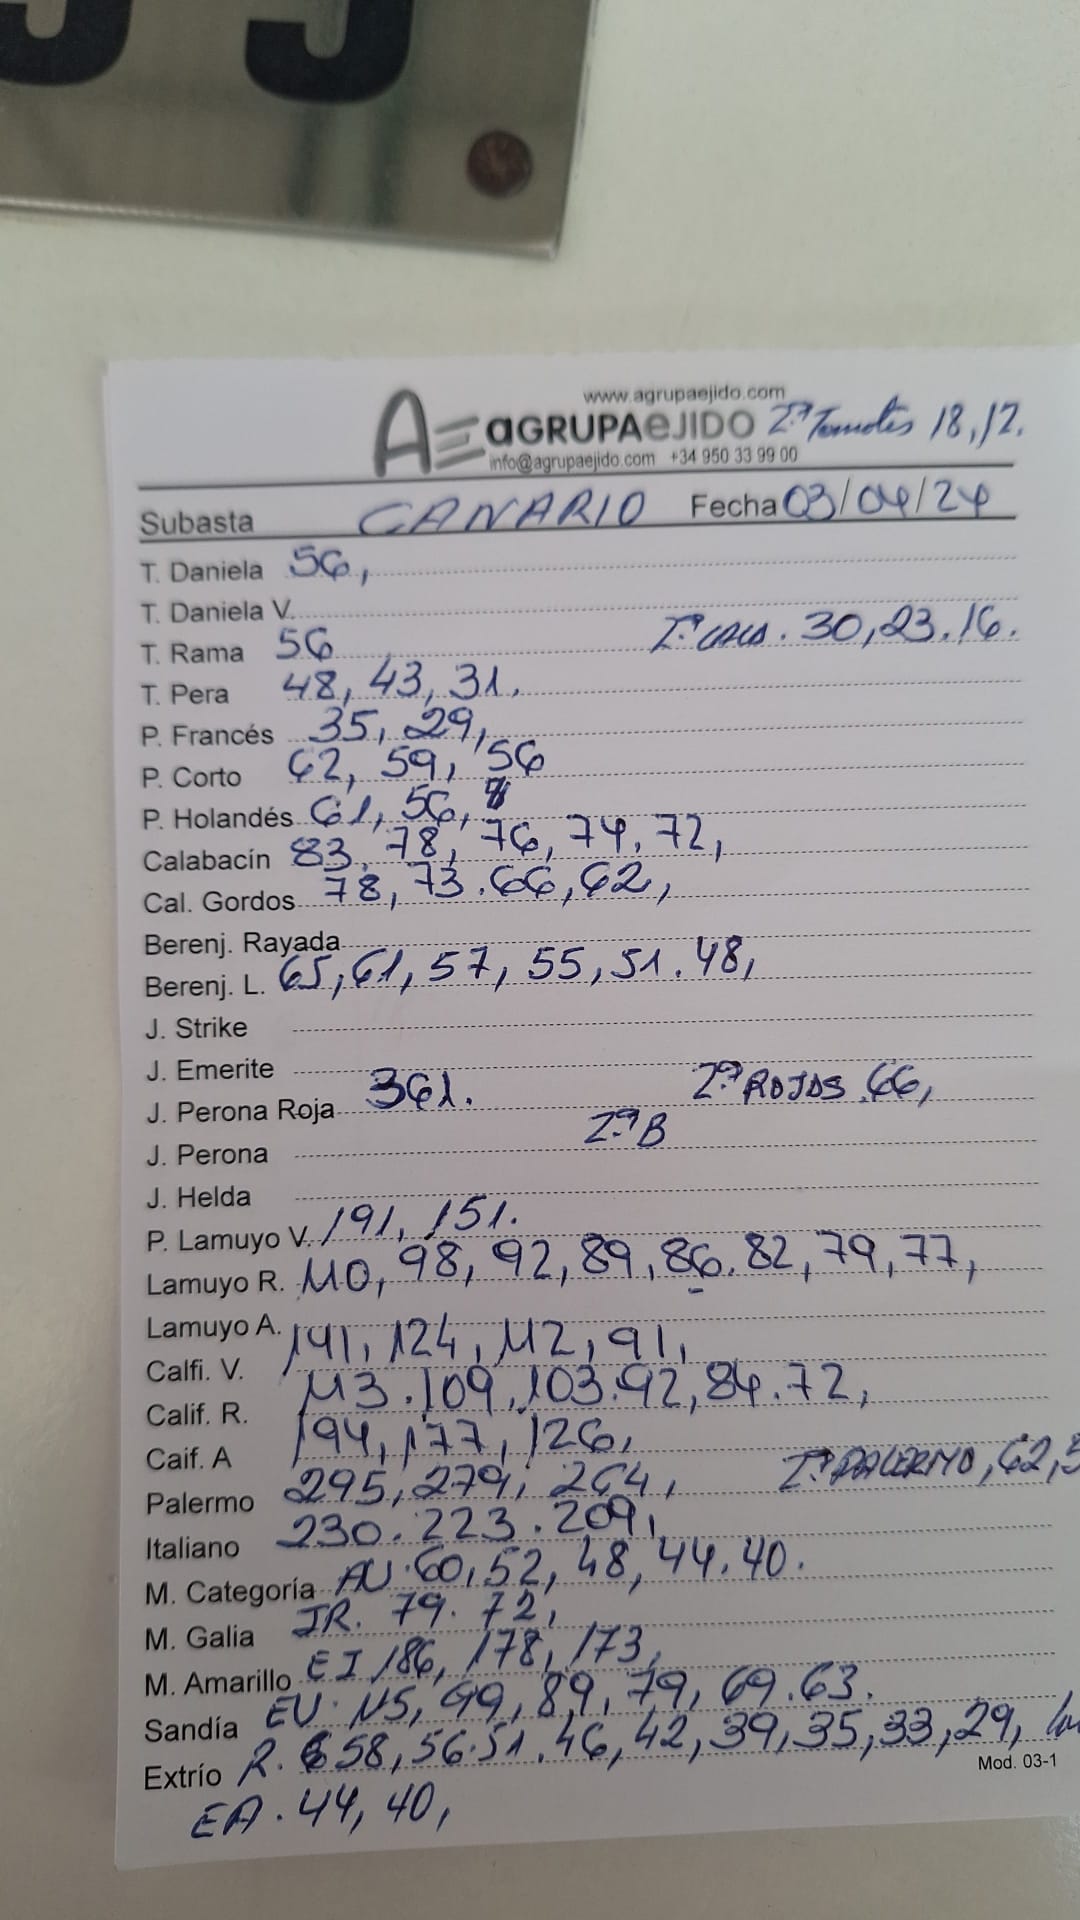 55
www.agrupaejido.com
AE aGRUPAeJIDO 2ª Tomates 18,12.
info@agrupaejido.com +34 950 33 99 00
Subasta CANARIO Fecha 03/04/24
T. Daniela 56,
T. Daniela V.
T. Rama 56 30,23.16.
T. Pera 48, 43, 31,
P. Francés 35, 29,
P. Corto 62, 59, 56
P. Holandés 61, 56,
Calabacín 83, 78, 76, 74, 72,
Cal. Gordos 78, 73.66, 62,
Berenj. Rayada
Berenj. L. 65, 61, 57, 55, 51.48,
J. Strike
J. Emerite
J. Perona Roja 361. 2ª ROJOS 66,
2ª B
J. Perona
J. Helda
P. Lamuyo V. 191, 151.
Lamuyo R. 110, 98, 92, 89, 86, 82, 79, 77,
Lamuyo A.
Calfi. V. 141, 124, 112, 91,
Calif. R. 113.109, 103.92, 84.72,
Caif. A 194, 177, 126,
Palermo 295, 279, 264, 2ª PALERMO, 62, 5
Italiano 230.223.209,
M. Categoría AU.60, 52, 48, 44.40.
M. Galia JR. 79. 72,
M. Amarillo EI 186, 178, 173,
Sandía EU. 115, 99, 89, 79, 69.63.
Extrío R. 58, 56.51.46, 42, 39, 35, 33, 29,
Mod. 03-1
EA. 44, 40,